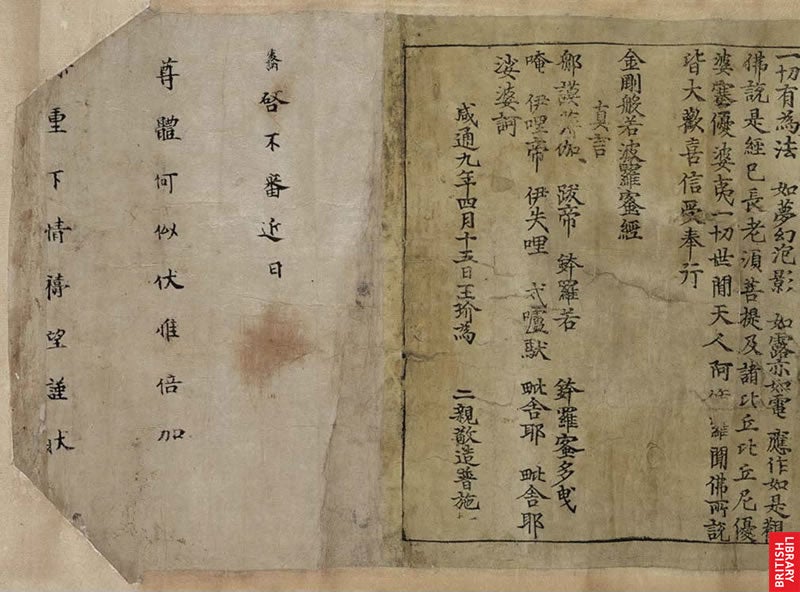 一切有為法 如夢幻泡影 如露亦如電 應作如是觀
佛說是經已長老須菩提及諸比丘比丘尼優
婆塞優婆夷一切世間天人阿修羅聞佛所說
皆大歡喜信受奉行
金剛般若波羅蜜經
真言
郍謨 伽 跋帝 鉢羅若 鉢羅蜜多曳
唵 伊哩帝 伊失哩 戍嚧馱 毗舍耶 毗舍耶
娑婆訶
咸通九年四月十五日王玠為 二親敬造普施
啓不審近日
尊體何似伏惟倍加
重下情禱望謹狀
BRITISH LIBRARY